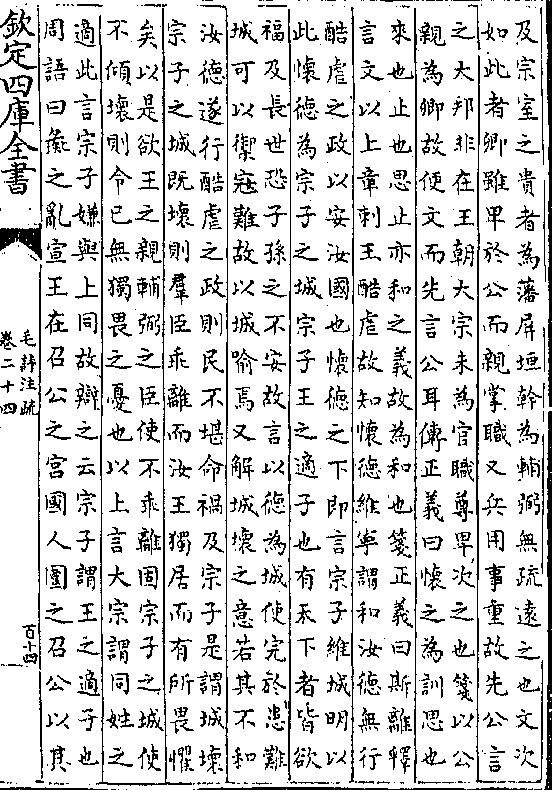 及宗室之貴者為藩屏垣幹為輔弼無疏遠之也文次
如此者卿雖卑於公而親掌職又兵用事重故先公言
之大邦非在王朝大宗未為官職尊卑次之也箋以公
親為卿故便文而先言公耳傳正義曰懷之為訓思也
來也止也思止亦和之義故為和也箋正義曰斯離釋
言文以上章刺王酷虐故知懷德維寧謂和汝德無行
酷虐之政以安汝國也懷德之下即言宗子維城明以
此懷德為宗子之城宗子王之適子也有天下者皆欲
福及長世恐子孫之不安故言以德為城使完於患難
城可以禦寇難故以城喻焉又解城壞之意若其不和
汝德遂行酷虐之政則民不堪命禍及宗子是謂城壞
宗子之城既壞則羣臣乖離而汝王獨居而有所畏懼
矣以是欲王之親輔弼之臣使不乖離固宗子之城使
不傾壞則令已無獨畏之憂也以上言大宗謂同姓之
適此言宗子嫌與上同故辯之云宗子謂王之適子也
周語曰彘之亂宣王在召公之宮國人圍之召公以其
欽定四庫全書
毛詩注疏
卷二十四
百十四